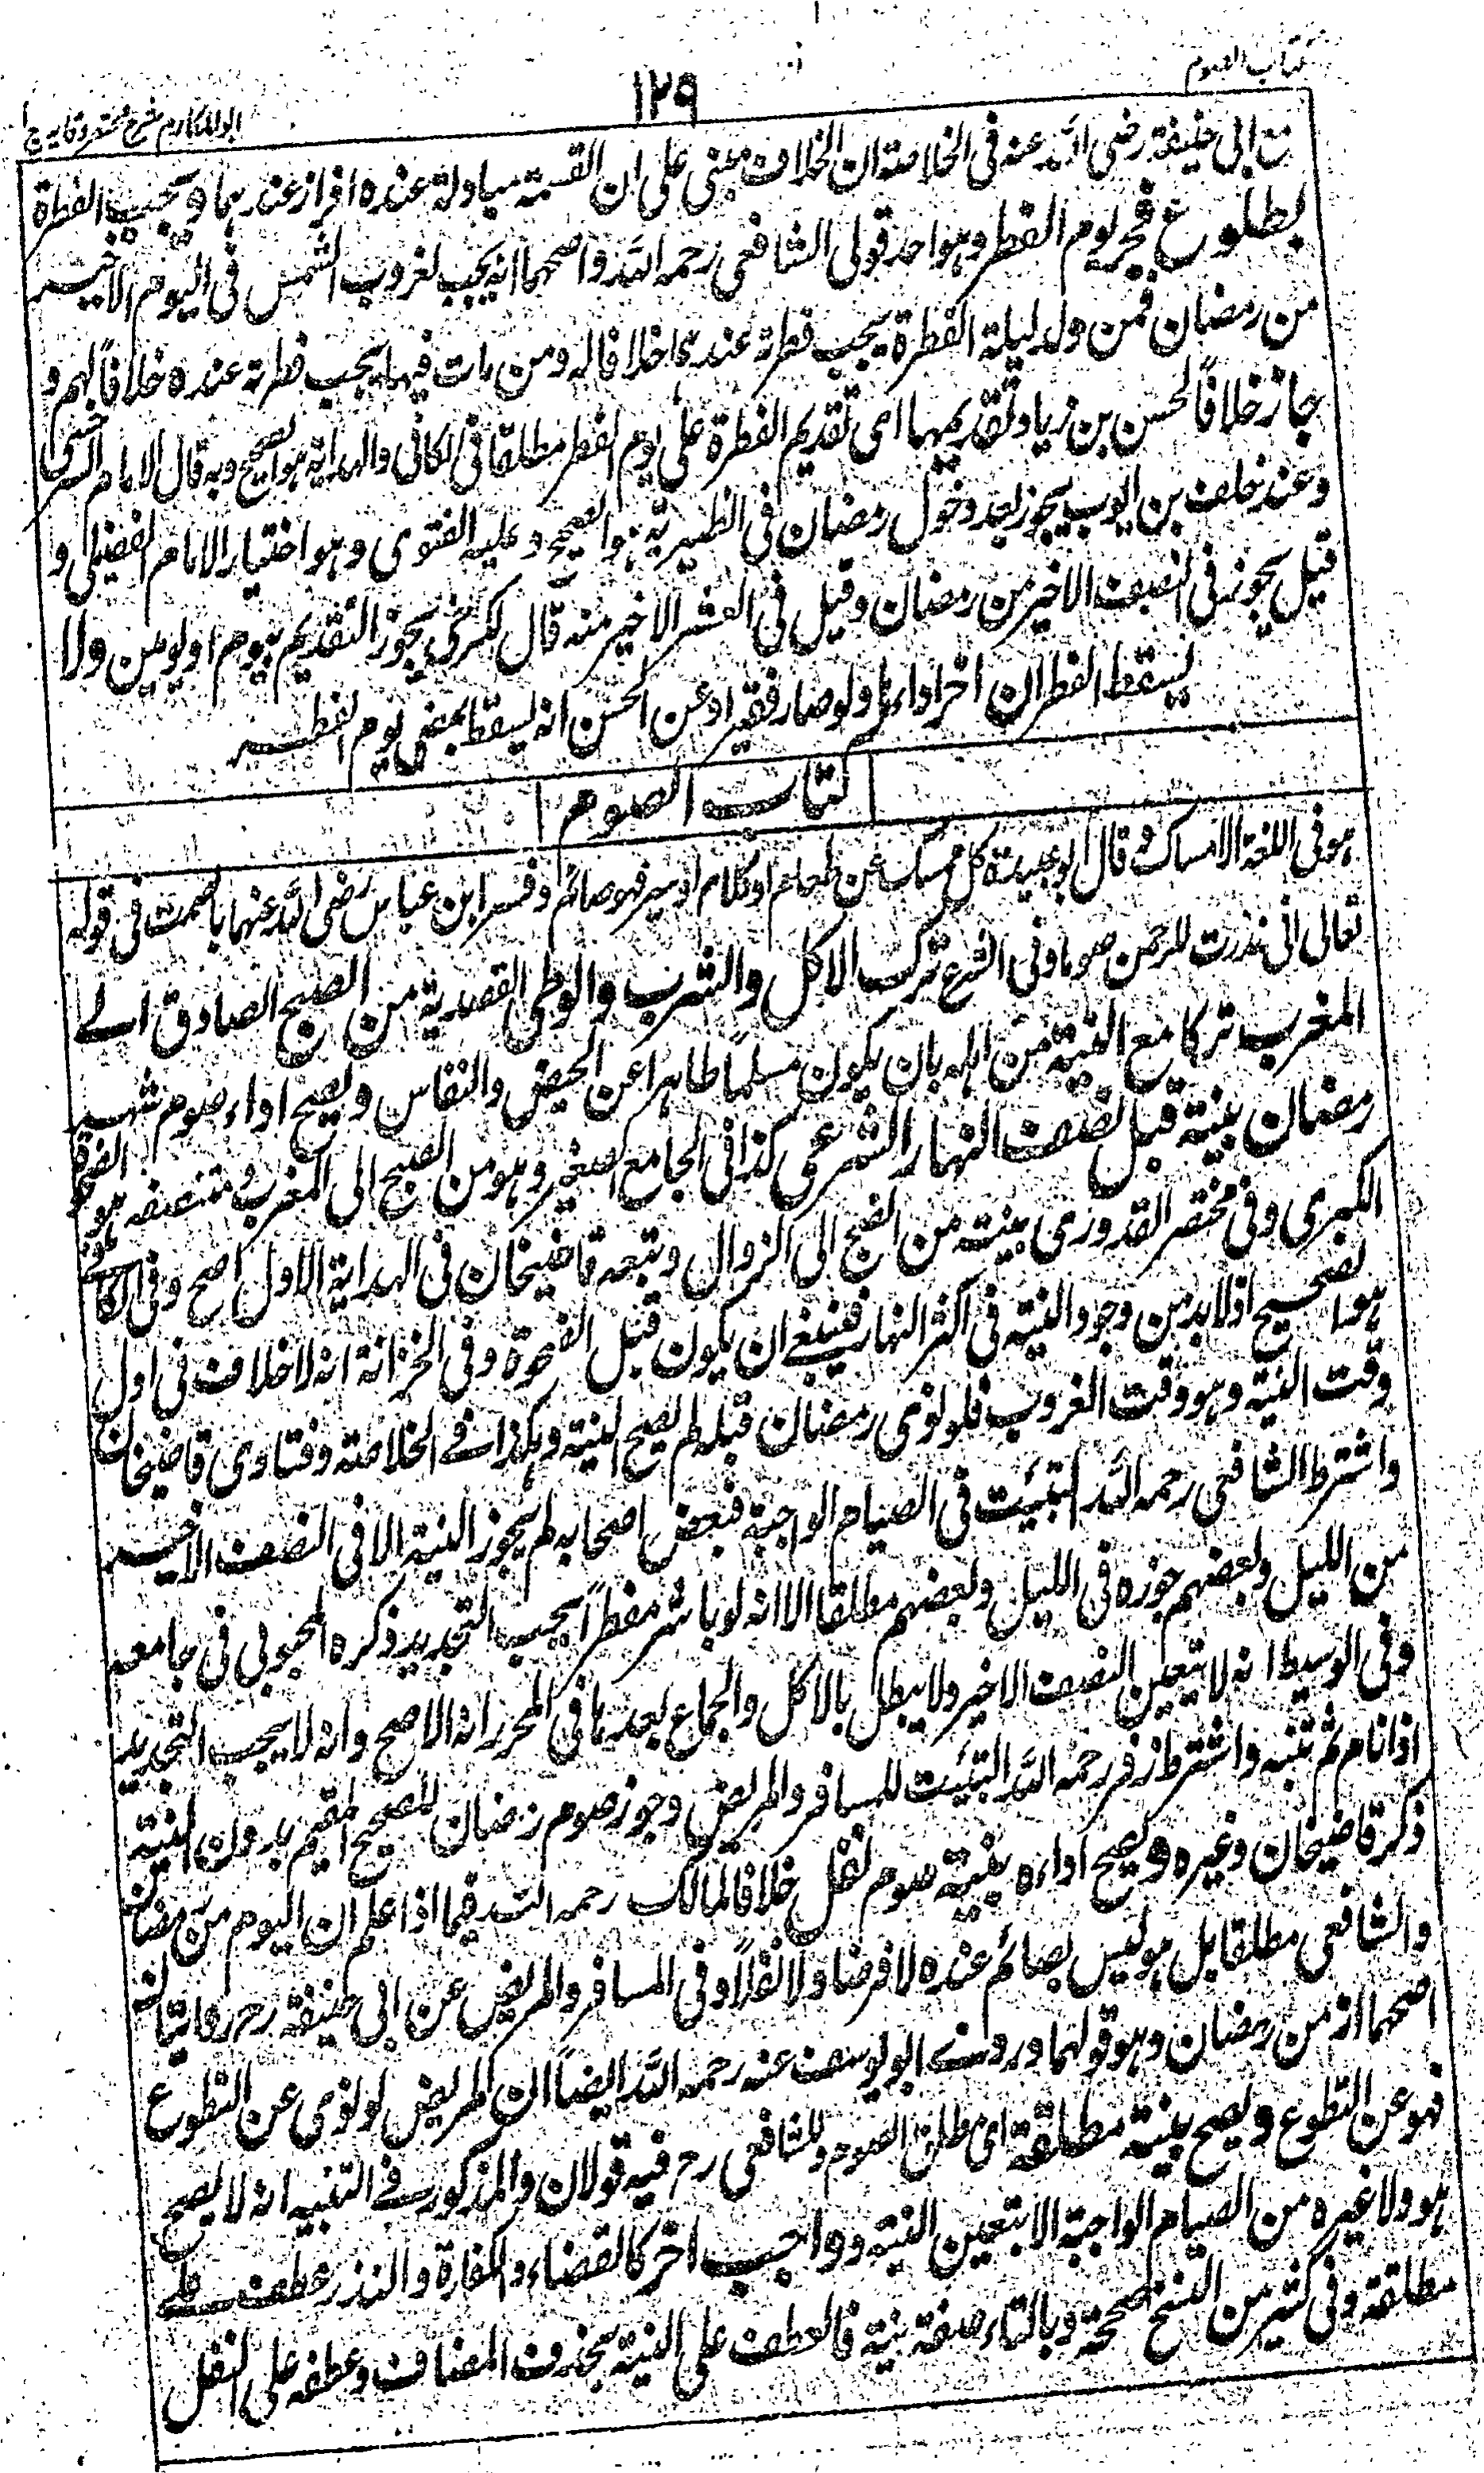 كتاب الصوم
١٢٩
ابو المكارم شرح مختصر وقايه ج ١
مع ابى حنيفة رضى الله عنه فى الخلاصة ان الخلاف مبنى على ان القسمة مبادلة عنده افراز عندهما و يجب الفطرة
بطلوع فجر يوم الفطر وهو احد قولى الشافعى رحمه الله واصحهما انه يجب لغروب الشمس فى اليوم الاخير
من رمضان فمن ولد ليلة الفطرة يجب فطرته عندنا خلافا له ومن مات فيها يجب فطرته عنده خلافا لهم و
جاز خلافاً لحسن بن زياد تقديمها اى تقديم الفطرة على يوم الفطر مطلقا فى الكافى والهداية هو الصحيح وبه قال الامام السرخسى
وعند خلف بن ايوب يجوز بعد دخول رمضان فى الظهيرية هو الصحيح وعليه الفتوى وهو اختيار الامام الفضيلى و
قيل يجوز فى النصف الاخير من رمضان وقيل فى العشر الاخير منه قال الكرخى يجوز التقديم بيوم او يومين ولا
يسقط الفطر ان اخر اداءها ولو صار فقيرا وعن الحسن انه يسقط بمضى يوم الفطر
كتاب الصوم
هو فى اللغة الامساك وقال ابو عبيدة كل ممسك عن طعام او كلام او سير فهو صائم وفسر ابن عباس رضى الله عنهما بالصمت فى قوله
تعالى انى نذرت للرحمن صوما وفى الشرع ترك الاكل والشرب والوطى القصدية من الصبح الصادق الى
المغرب تركا مع النية من اهله بان يكون مسلماً طاهرا عن الحيض والنفاس ويصح اداء صوم شهر
رمضان بنية قبل نصف النهار الشرعى كذا فى الجامع الصغير وهو من الصبح الى المغرب ومنتصفه هو الضحوة
الكبرى وفى مختصر القدورى بنيته من الصبح الى الزوال وتبعه قاضيخان فى الهداية الاول اصح وفى الكافى
هو الصحيح اذ لا بد من وجود النية فى اكثر النهار فينبغى ان يكون قبل الضحوة وفى الخزانة انه لا خلاف فى اول
وقت النية وهو وقت الغروب فلو نوى رمضان قبله لم يصح النية وهكذا فى الخلاصة وفتاوى قاضيخان
واشترط الشافعى رحمه الله التبئيت فى الصيام الواجبة فبعض اصحابه لم يجوز النية الا فى النصف الاخير
من الليل وبعضهم جوزه فى الليل وبعضهم مطلقا الا انه لو باشر مفطراً يجب التجديد ذكره المحبوبى فى جامعه
وفى الوسيط انه لا يتعين النصف الاخير ولا يبطل بالاكل والجماع بعدها فى المحرر انه الاصح وانه لا يجب التجديد
اذا نام ثم تنبه واشترط زفر رحمه الله التبئيت للمسافر والمريض وجوز صوم رمضان للصحيح المقيم بدون النية
ذكر قاضيخان وغيره ويصح اداءه بنية صوم نفل خلافا لمالك رحمه الله فيما اذا علم ان اليوم من رمضان
والشافعى مطلقا بل هو ليس بصائم عنده لا فرضا ولا نفلاً وفى المسافر والمريض عن ابى حنيفة رحه روايتان
اصحهما انه من رمضان وهو قولهما وروى ابو يوسف عنه رحمه الله ايضاً ان المريض لو نوى عن التطوع
فهو عن التطوع ويصح بنية مطلقة اى مطلق الصوم وللشافعى رح فيه قولان والمذكور فى التنبيه انه لا يصح
هو ولا غيره من الصيام الواجبة الا بتعين النية وواجب اخر كالقضاء والكفارة والنذر عطف على
مطلقة وفى كثير من النسخ الصحيحة وبالتاء صفة نية فالعطف على النية بحذف المضاف وعطفه على النفل